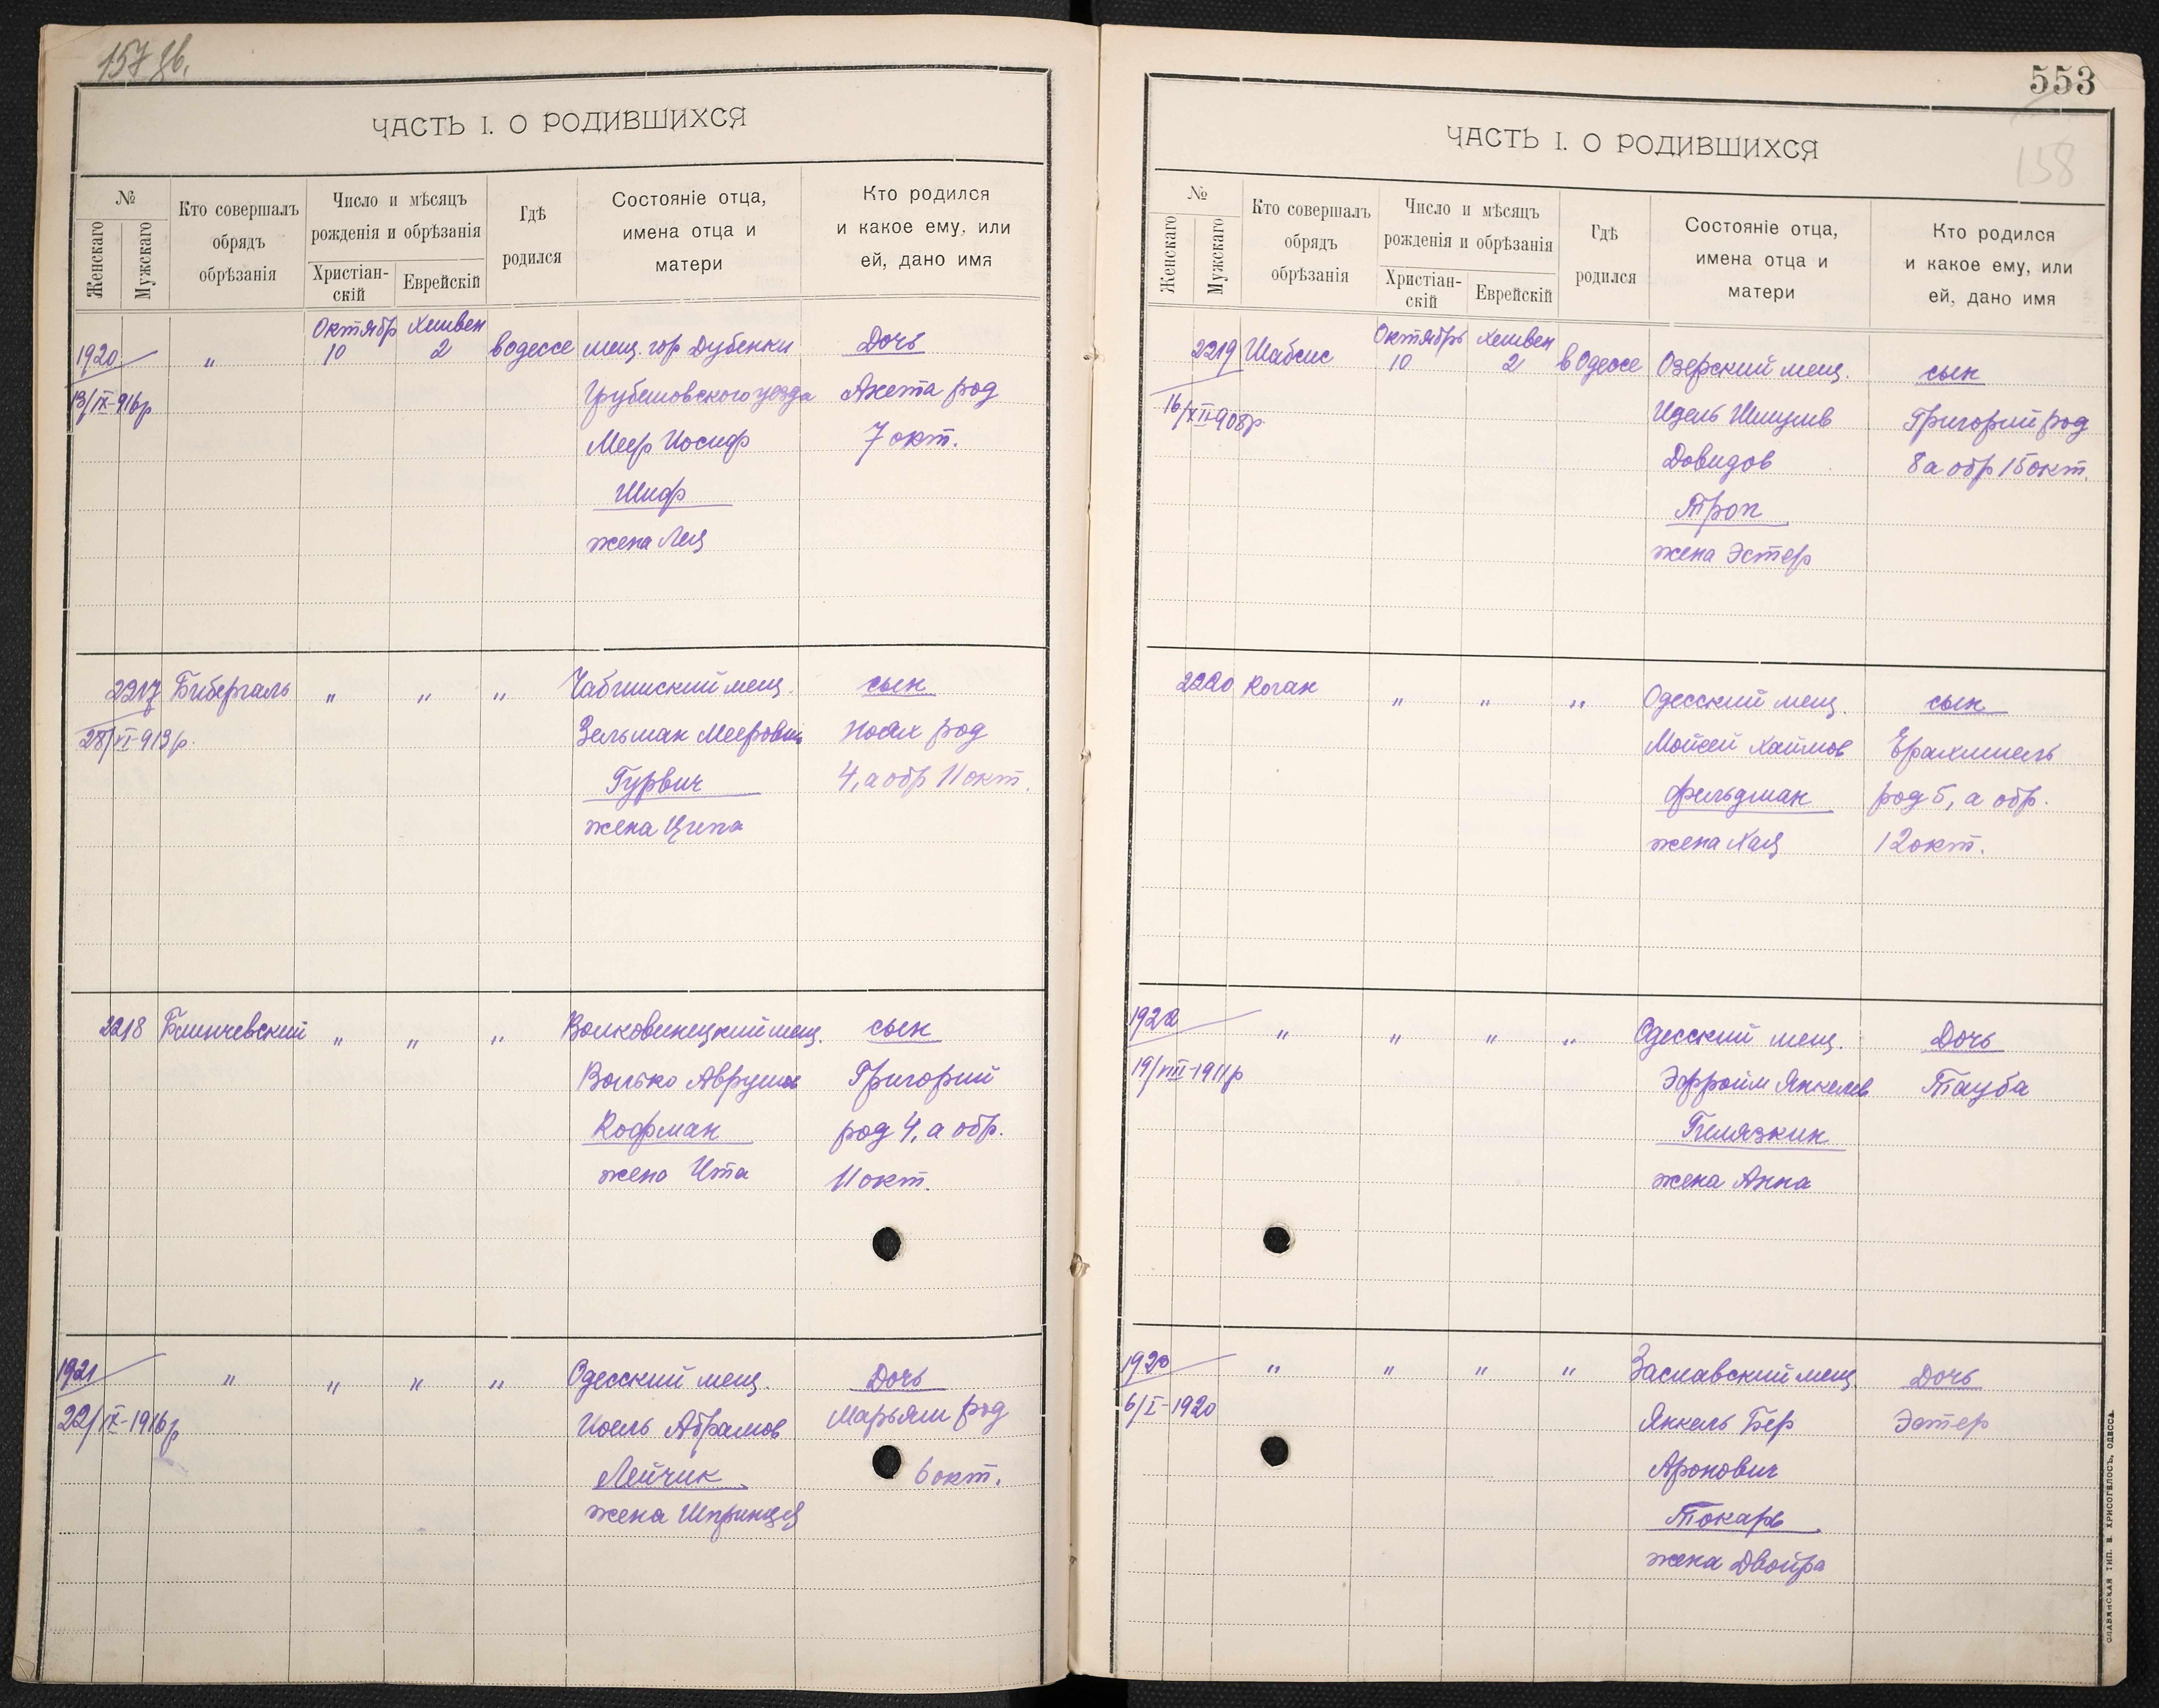 157 зв.
ЧАСТЬ I. О РОДИВШИХСЯ
№
Женскаго
Мужскаго
Кто совершалъ
обрядъ
обрѣзанія
Число и мѣсяцъ
рожденія и обрѣзанія
Христіан-
скій
Еврейскій
Гдѣ
родился
Состояніе отца,
имена отца и
матери
Кто родился
и какое ему, или
ей, дано имя
Октябр Хешвен
1920 " 10 2 в Одессе мещ. гор Дубенки Дочь
13/IX-916р Грубешовского уезда Анета род
Меер Иосиф 7 окт.
Шиф
жена Лея
2217 Бибергаль " " " Чабгинский мещ. сын
28/VI-913р. Зельман Меерович Носах род
Гурвич 4, а обр 11 окт.
жена Ципа
2218 Блинчевский " " " Волковинецкий мещ. сын
Волько Аврумов Григорий
Кофман род 4, а обр.
жена Ита 11 окт.
1921 " " " " Одесский мещ. Дочь
22/IX-1916р Иоель Абрамов Марьям род
Лейчик 6 окт.
жена Шпринця
553
158
ЧАСТЬ I. О РОДИВШИХСЯ
№
Женскаго
Мужскаго
Кто совершалъ
обрядъ
обрѣзанія
Число и мѣсяцъ
рожденія и обрѣзанія
Христіан-
скій
Еврейскій
Гдѣ
родился
Состояніе отца,
имена отца и
матери
Кто родился
и какое ему, или
ей, дано имя
Октябрь Хешвен
2219 Шабсис 10 2 в Одессе Озерский мещ. сын
16/XII-908р Идель Шмулив Григорий род
Довидов 8 а обр 15 окт.
Троп
жена Эстер
2220 Коган " " " Одесский мещ. сын
Мойсей Хаимов Ерахмиель
Фельдман род 5, а обр.
жена Хая 12 окт.
1922 " " " " Одесский мещ. Дочь
19/VIII-1911р Эфроим Янкелев Тауба
Гилязкин
жена Анна
1923 " " " " Заславский мещ. Дочь
6/I-1920 Янкель Бер Эстер
Аронович
Токарь
жена Двойра
СЛАВЯНСКАЯ ТИП. Е. ХРИСОГЕЛОСЪ, ОДЕССА.